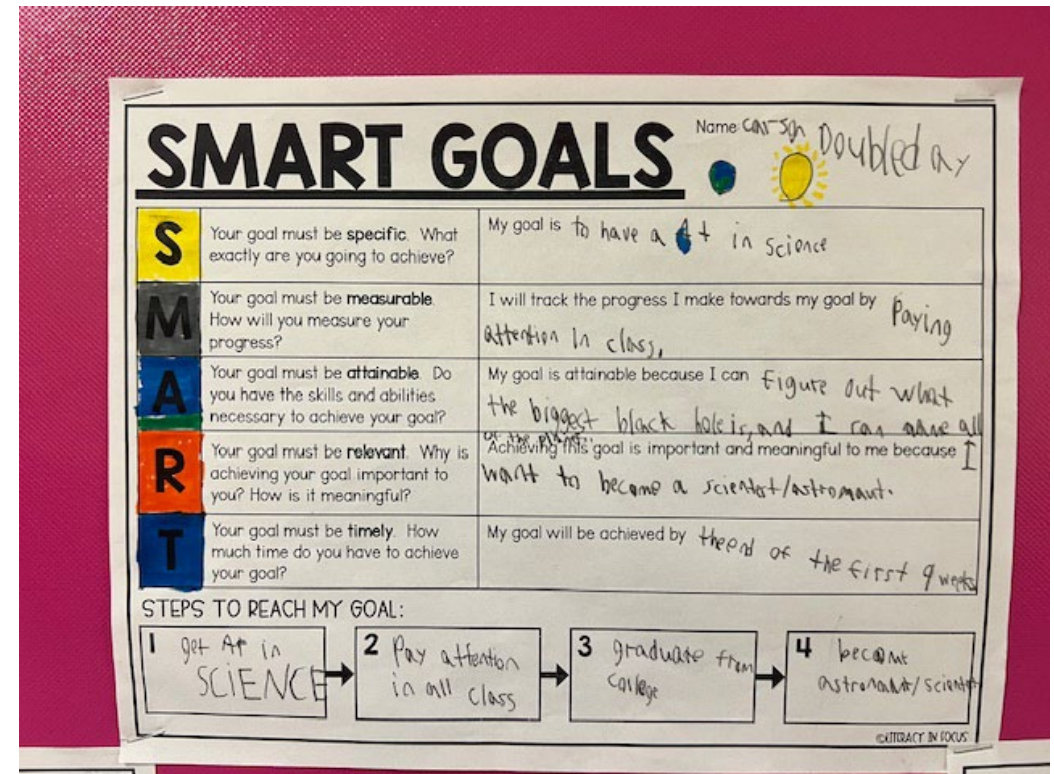 SMART GOALS
Name: Carson Doubleday
S
Your goal must be specific. What
exactly are you going to achieve?
My goal is to have a A+ in science
M
Your goal must be measurable.
How will you measure your
progress?
I will track the progress I make towards my goal by Paying
attention in class.
A
Your goal must be attainable. Do
you have the skills and abilities
necessary to achieve your goal?
My goal is attainable because I can Figure out what
the biggest black hole is, and I can all
of the
R
Your goal must be relevant. Why is
achieving your goal important to
you? How is it meaningful?
Achieving this goal is important and meaningful to me because I
want to become a scientist/astronaut.
T
Your goal must be timely. How
much time do you have to achieve
your goal?
My goal will be achieved by the end of the first 9 weeks
STEPS TO REACH MY GOAL:
1 get A+ in
SCIENCE
2 Pay attention
in all class
3 graduate from
college
4 become
astronaut/scientist
©LITERACY IN FOCUS